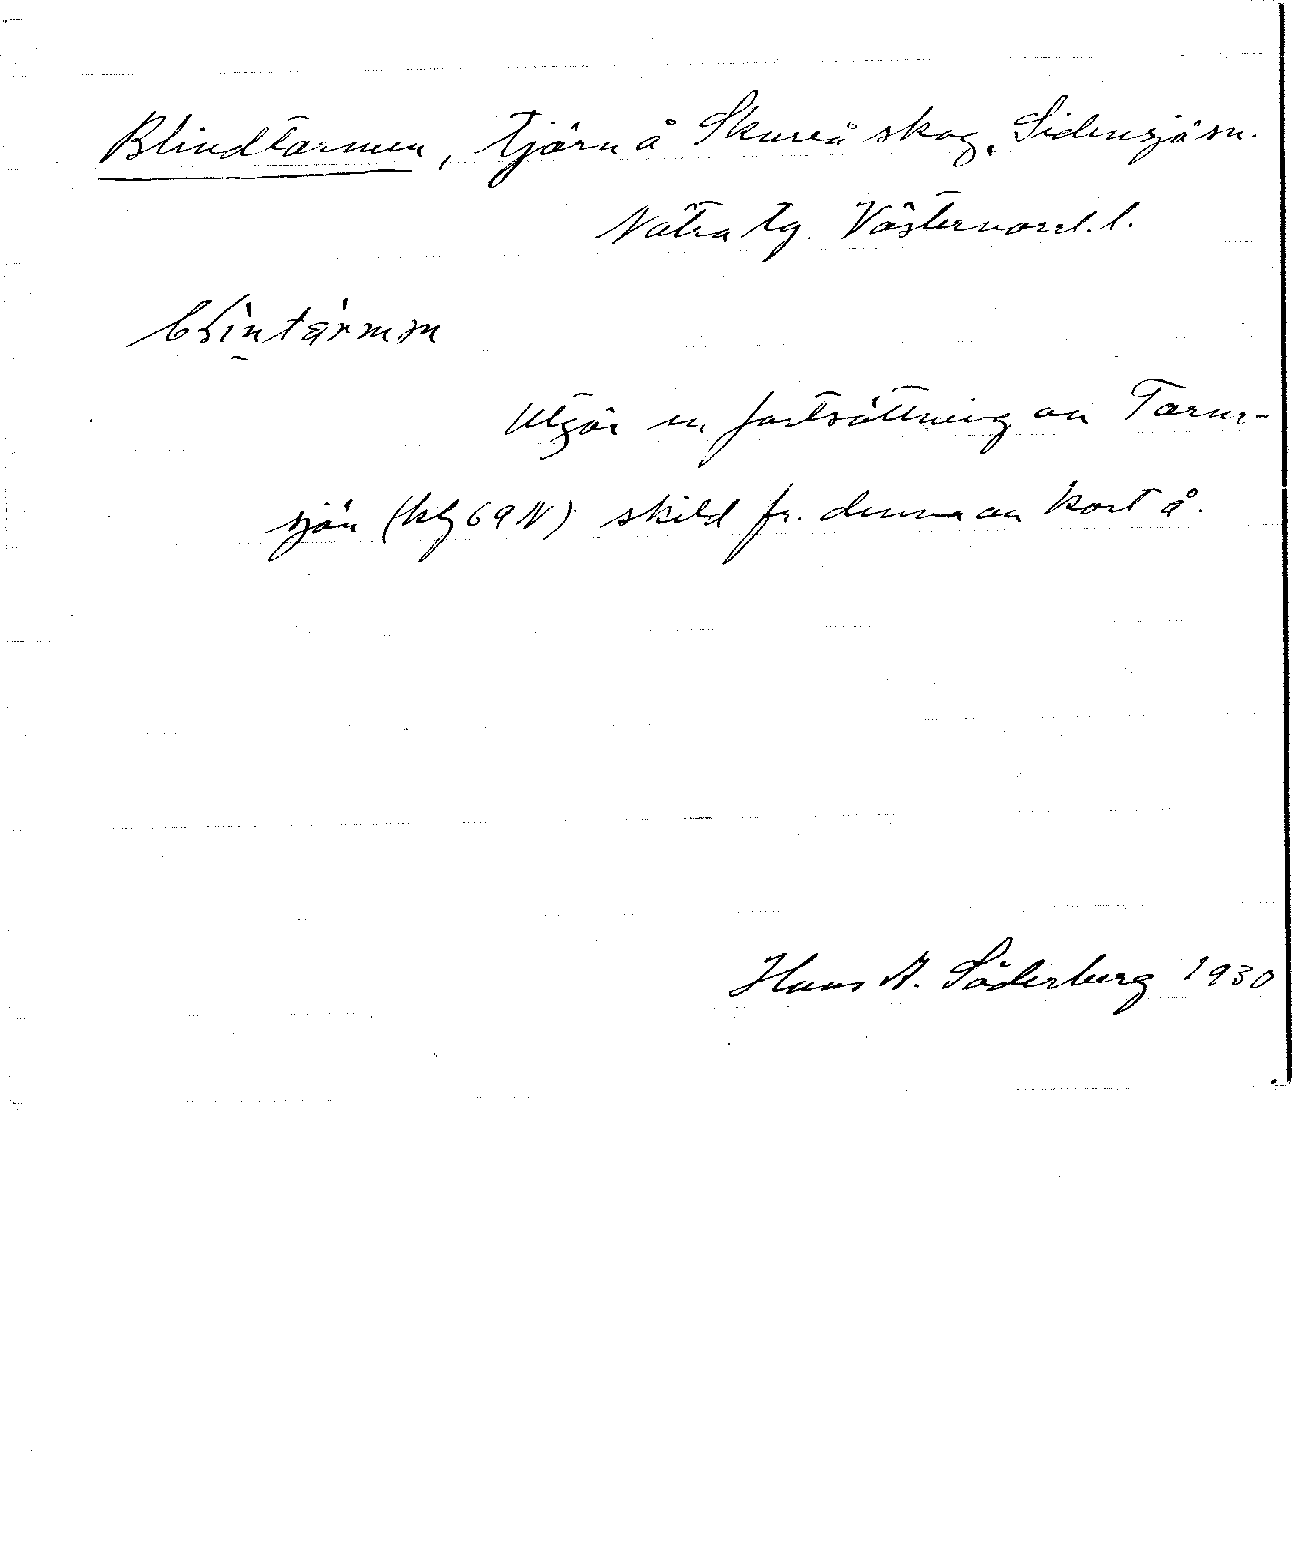 Blindtarmen, tjärn å Skureå skog, Sidensjö sn.
Nätra tg. Västernorrl. l.
blintarmm
Utgör en fortsättning av Tarm-
sjön (kbj 69 N) skild fr. denna av kort å.
Hans A. Söderberg 1930